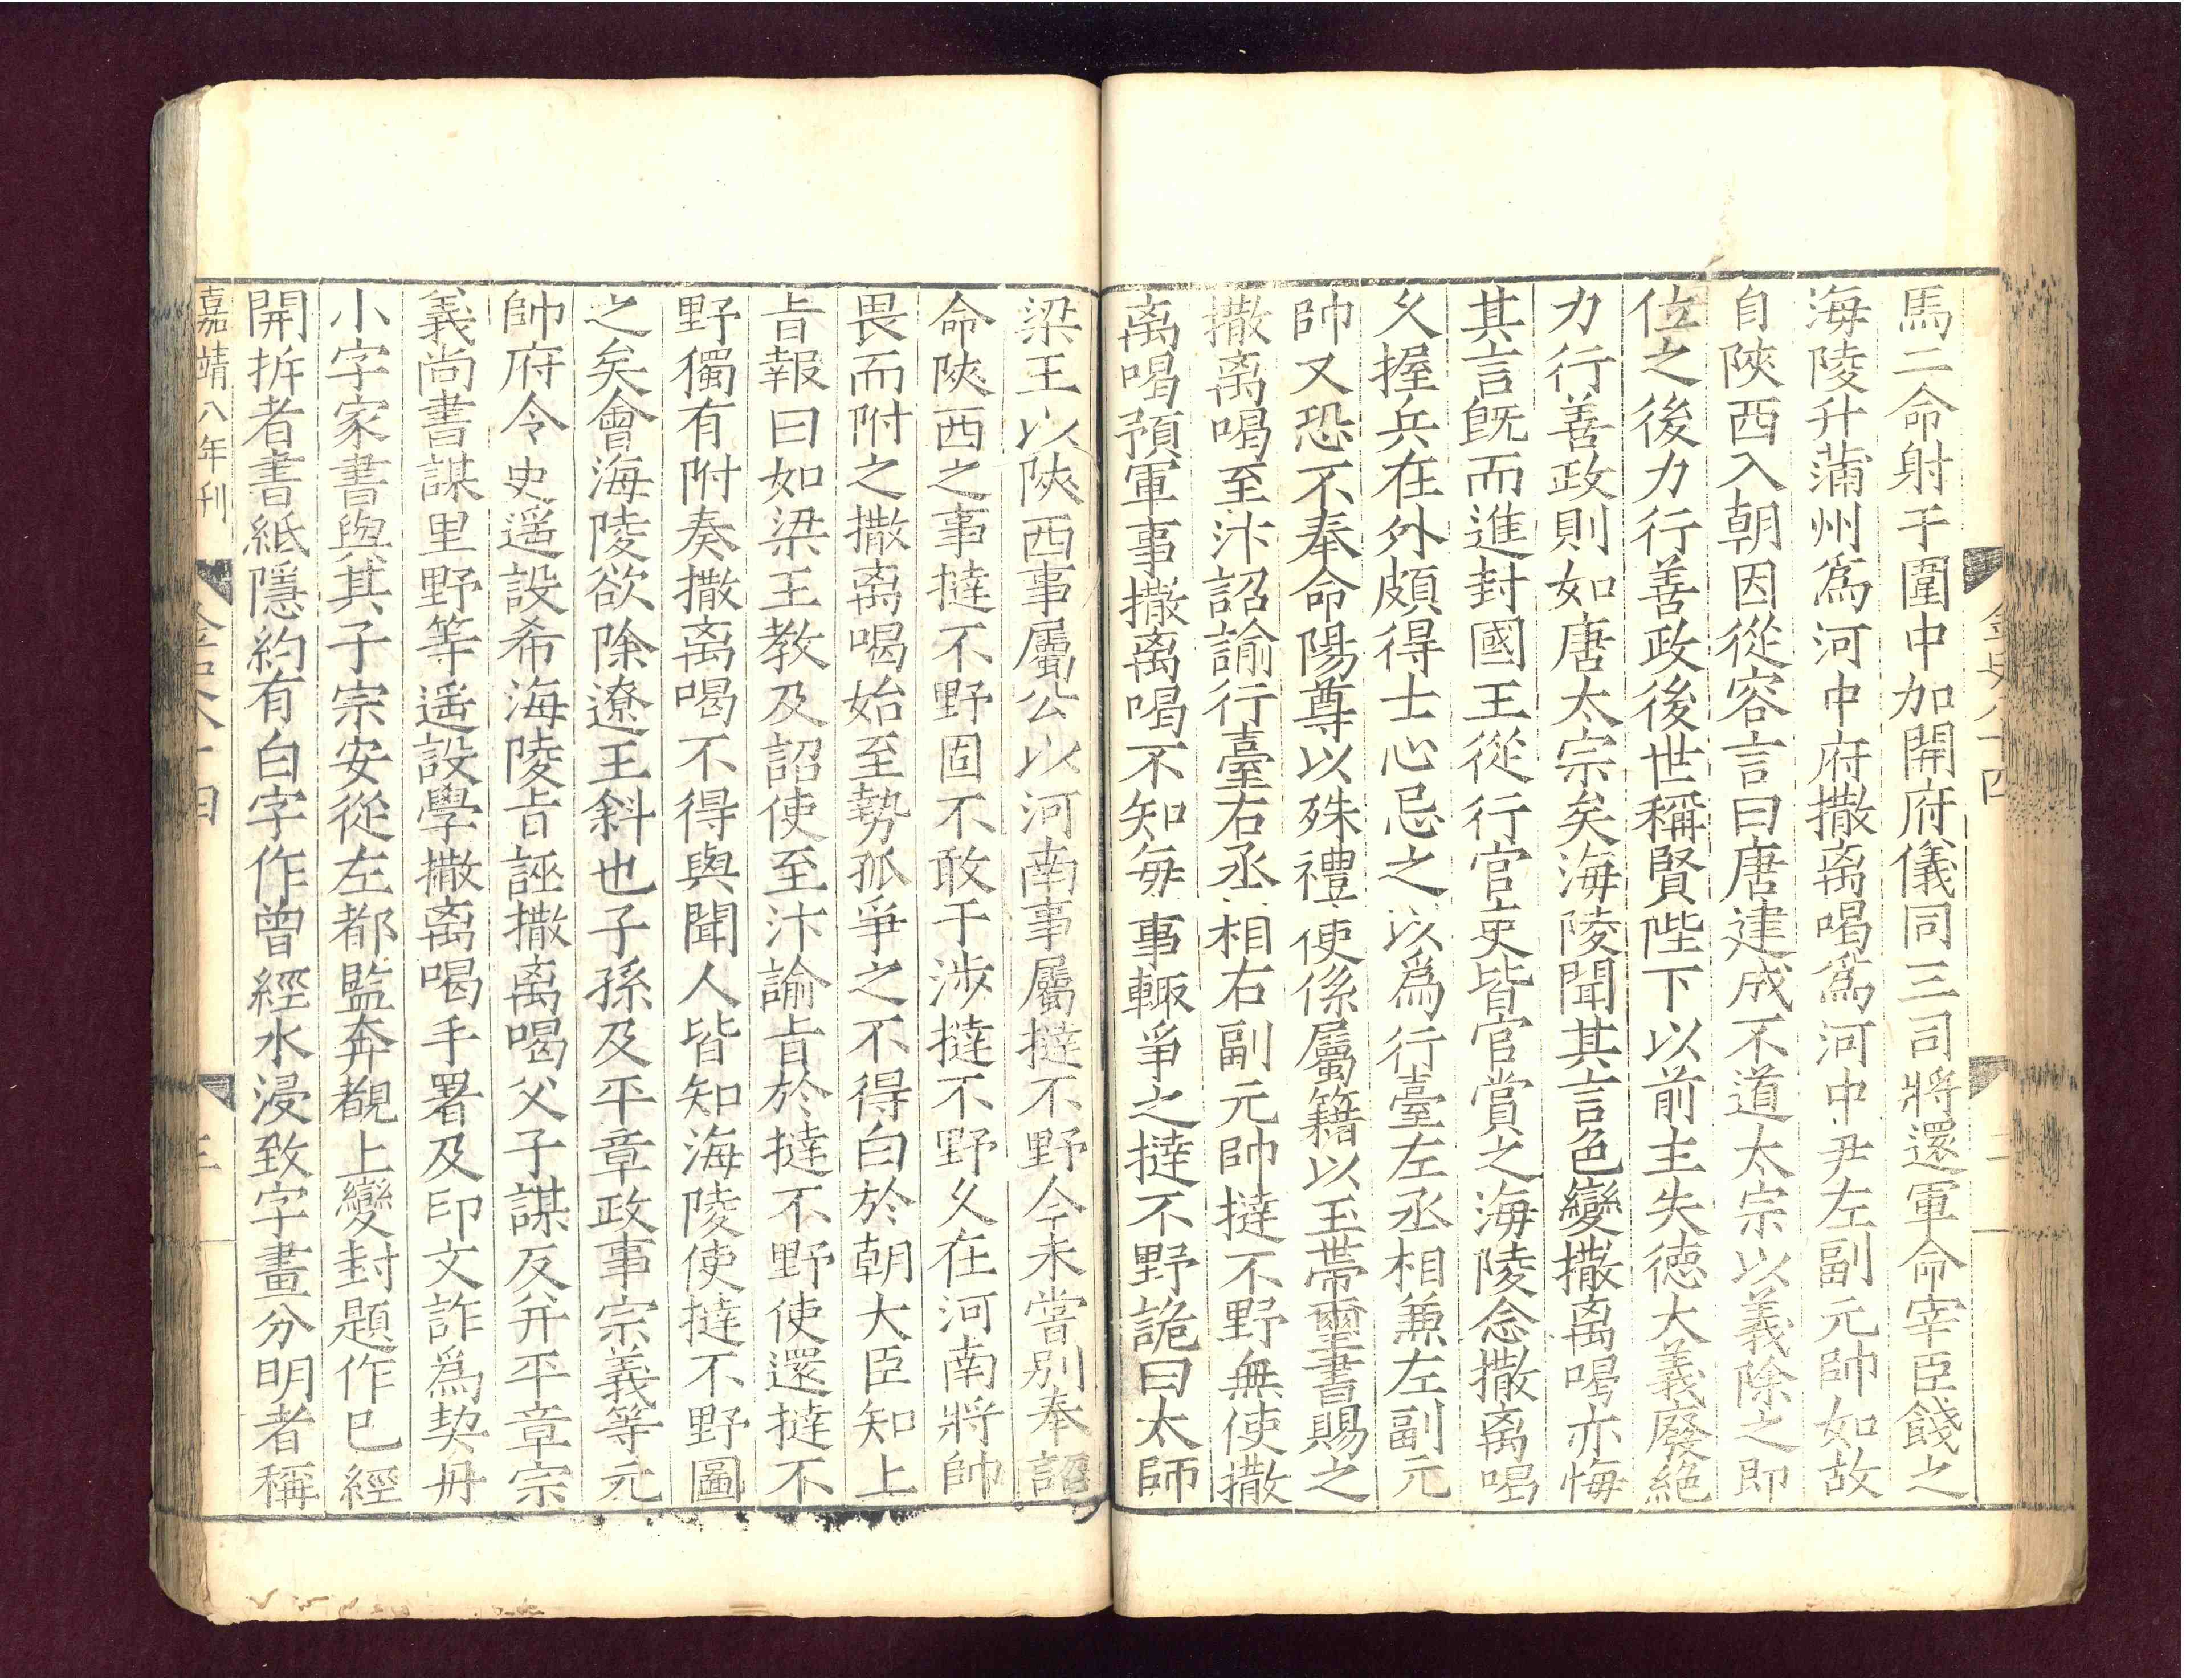 馬二命射于圍中加開府儀同三司將還軍命宰臣餞之
海陵升蒲州爲河中府撒离喝爲河中尹左副元帥如故
自陜西入朝因從容言曰唐建成不道太宗以義除之即
位之後力行善政後世稱賢陛下以前主失德大義廢絕
力行善政則如唐太宗矣海陵聞其言色變撒离喝亦悔
其言旣而進封國王從行官吏皆官賞之海陵念撒离喝
久握兵在外頗得士心忌之以爲行臺左丞相兼左副元
帥又恐不奉命陽尊以殊禮使係屬籍以玉帶璽書賜之
撒离喝至汴詔諭行臺右丞相右副元帥撻不野無使撒
离喝預軍事撒离喝不知每事輙爭之撻不野詭曰太師
梁王以陜西事屬公以河南事屬撻不野今未嘗別奉詔
命陜西之事撻不野固不敢干涉撻不野久在河南將帥
畏而附之撒离喝始至勢孤爭之不得白於朝大臣知上
旨報曰如梁王教及詔使至汴諭旨於撻不野使還撻不
野獨有附奏撒离喝不得與聞人皆知海陵使撻不野圖
之矣會海陵欲除遼王斜也子孫及平章政事宗義等元
帥府令史遥設希海陵旨誣撒离喝父子謀反并平章宗
義尚書謀里野等遥設學撒离喝手署及印文詐爲契丹
小字家書與其子宗安從左都監奔覩上變封題作已經
開拆者書紙隱約有白字作曾經水浸致字畫分明者稱
嘉靖八年刊
金史八十四
三
金史八十四
二